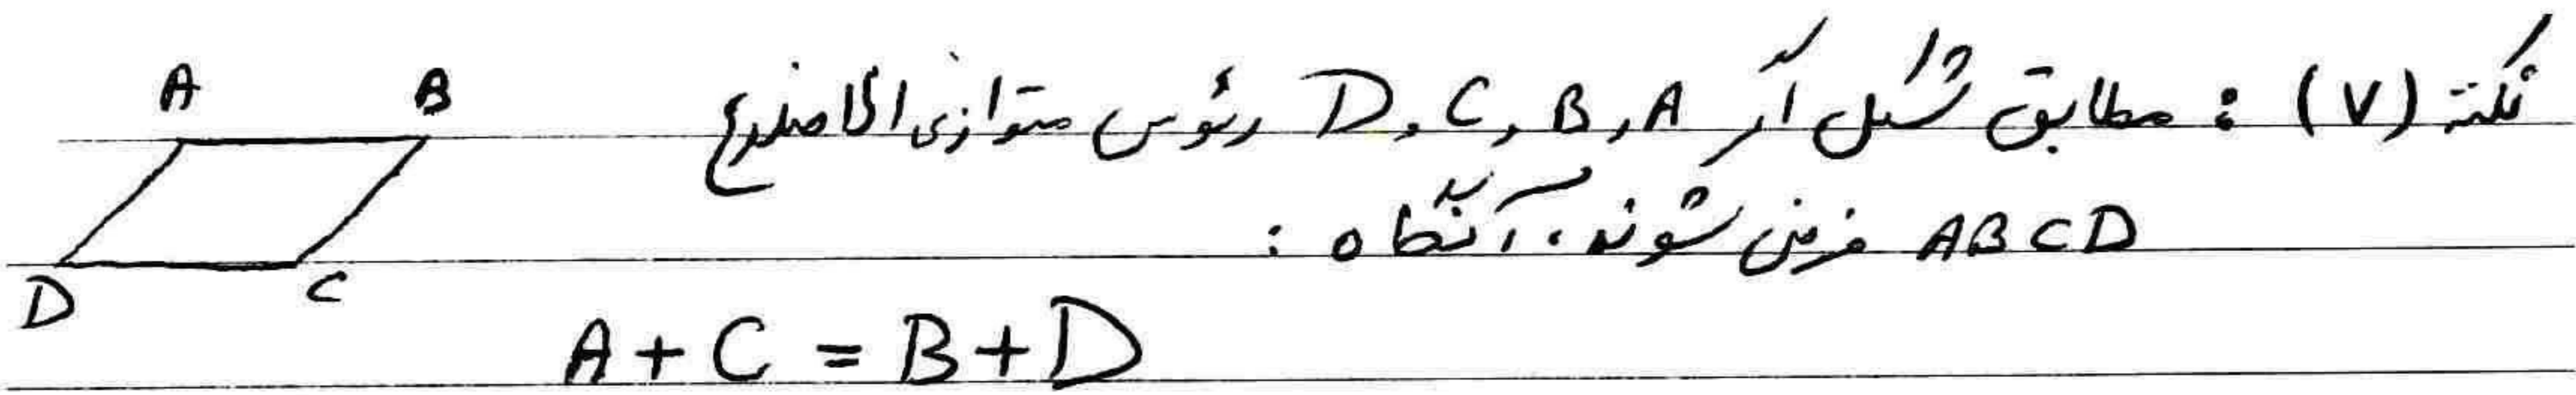 A B
نکتهٔ (۷) : مطابق شکل اگر A و B و C و D رئوس متوازی الاضلاع
ABCD فرض شوند ، آنگاه :
D C
A + C = B + D